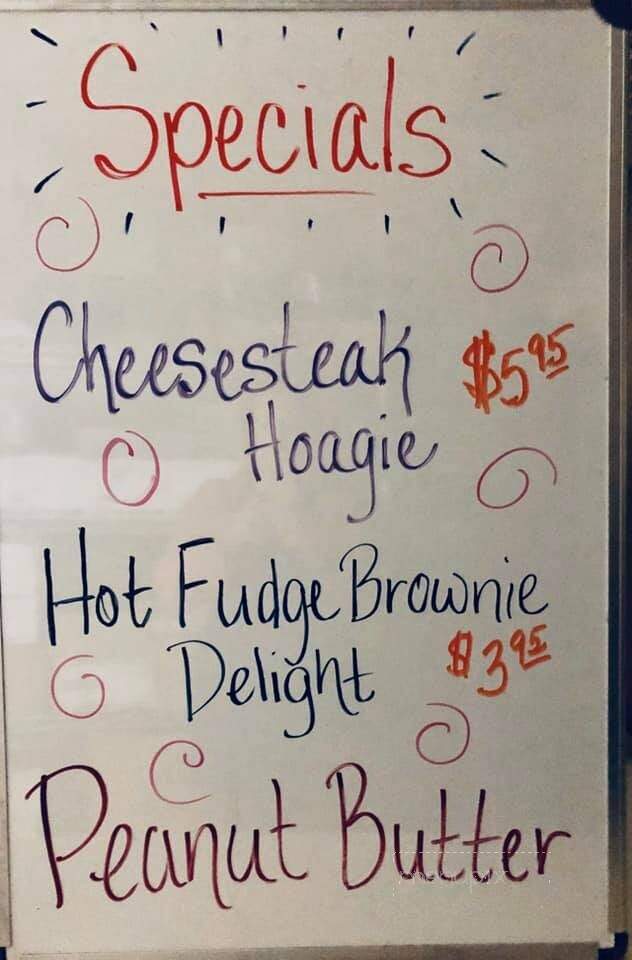 Specials
Cheesesteak $5.95
Hoagie
Hot Fudge Brownie
Delight $3.95
Peanut Butter